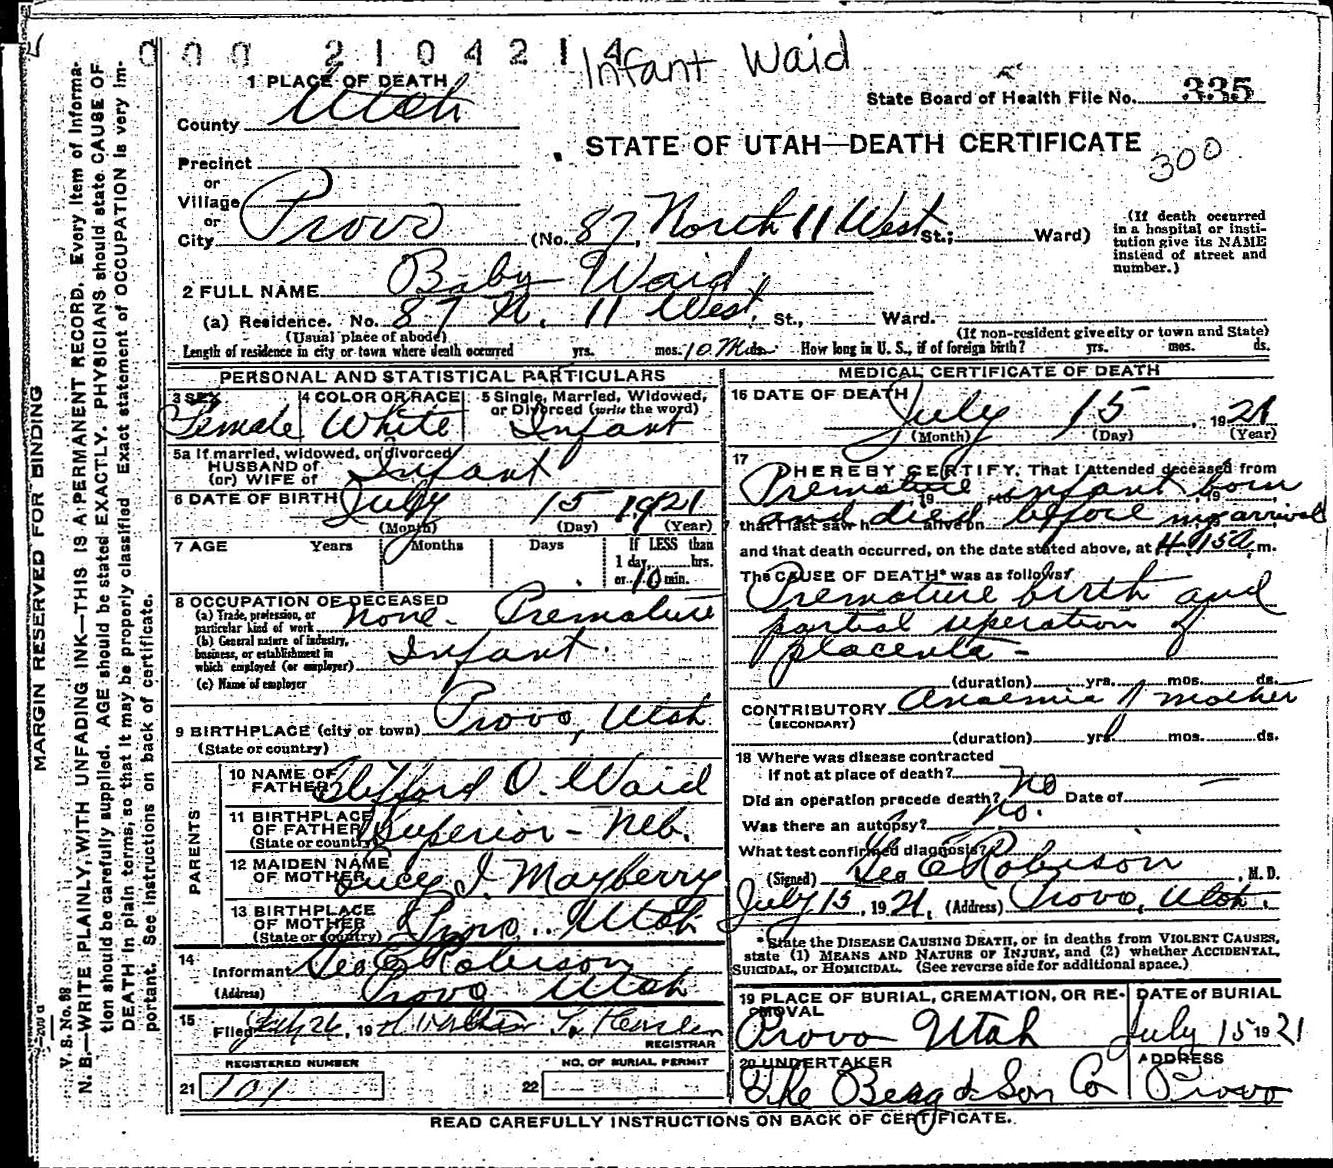 0 0 0 2 1 0 4 2 1 4
Infant Waid
1 PLACE OF DEATH
County Utah
State Board of Health File No. 335
STATE OF UTAH—DEATH CERTIFICATE
300
Precinct
or
Village
or
City Provo (No. 87, North 11 West St.; Ward)
(If death occurred in a hospital or institution give its NAME instead of street and number.)
2 FULL NAME Baby Waid
(a) Residence. No. 87 N. 11 West. St., Ward.
(Usual place of abode) (If non-resident give city or town and State)
Length of residence in city or town where death occurred yrs. mos. 10 ds. How long in U. S., if of foreign birth? yrs. mos. ds.
PERSONAL AND STATISTICAL PARTICULARS
3 SEX Female
4 COLOR OR RACE White
5 Single, Married, Widowed, or Divorced (write the word) Infant
5a If married, widowed, or divorced
HUSBAND of
(or) WIFE of Infant
6 DATE OF BIRTH July 15 1921
(Month) (Day) (Year)
7 AGE Years Months Days If LESS than
1 day, hrs.
or 10 min.
8 OCCUPATION OF DECEASED
(a) Trade, profession, or particular kind of work None. Premature
(b) General nature of industry, business, or establishment in which employed (or employer) Infant.
(c) Name of employer
9 BIRTHPLACE (city or town) Provo, Utah
(State or country)
PARENTS
10 NAME OF FATHER Clifford O. Waid
11 BIRTHPLACE OF FATHER Superior - Neb.
(State or country)
12 MAIDEN NAME OF MOTHER Lucy I. Mayberry
13 BIRTHPLACE OF MOTHER Provo.. Utah
(State or country)
14
Informant Geo E Robison
(Address) Provo Utah
15
Filed July 26, 19
REGISTRAR
REGISTERED NUMBER
21 101
NO. OF BURIAL PERMIT
22
MEDICAL CERTIFICATE OF DEATH
16 DATE OF DEATH July 15, 1921
(Month) (Day) (Year)
17
I HEREBY CERTIFY, That I attended deceased from
Premature infant born
, 19 , to , 19 ,
and died before my arrival
that I last saw h alive on 19
and that death occurred, on the date stated above, at m.
The CAUSE OF DEATH* was as follows:
Premature birth and
partial seperation of
placenta -
(duration) yrs. mos. ds.
CONTRIBUTORY Anaemia of mother
(SECONDARY)
(duration) yrs. mos. ds.
18 Where was disease contracted
if not at place of death?
Did an operation precede death? No Date of —
Was there an autopsy? No.
What test confirmed diagnosis?
(Signed) Geo E Robison, M. D.
July 15, 1921, (Address) Provo, Utah.
* State the DISEASE CAUSING DEATH, or in deaths from VIOLENT CAUSES, state (1) MEANS AND NATURE OF INJURY, and (2) whether ACCIDENTAL, SUICIDAL, OR HOMICIDAL. (See reverse side for additional space.)
19 PLACE OF BURIAL, CREMATION, OR REMOVAL
Provo Utah
DATE of BURIAL
July 15 1921
20 UNDERTAKER
The Berg & Son Co
ADDRESS
Provo
READ CAREFULLY INSTRUCTIONS ON BACK OF CERTIFICATE.
MARGIN RESERVED FOR BINDING
V. S. No. 98
N. B.—WRITE PLAINLY, WITH UNFADING INK—THIS IS A PERMANENT RECORD. Every item of Informa-
tion should be carefully supplied. AGE should be stated EXACTLY. PHYSICIANS should state CAUSE OF
DEATH in plain terms, so that it may be properly classified. Exact statement of OCCUPATION is very im-
portant. See instructions on back of certificate.